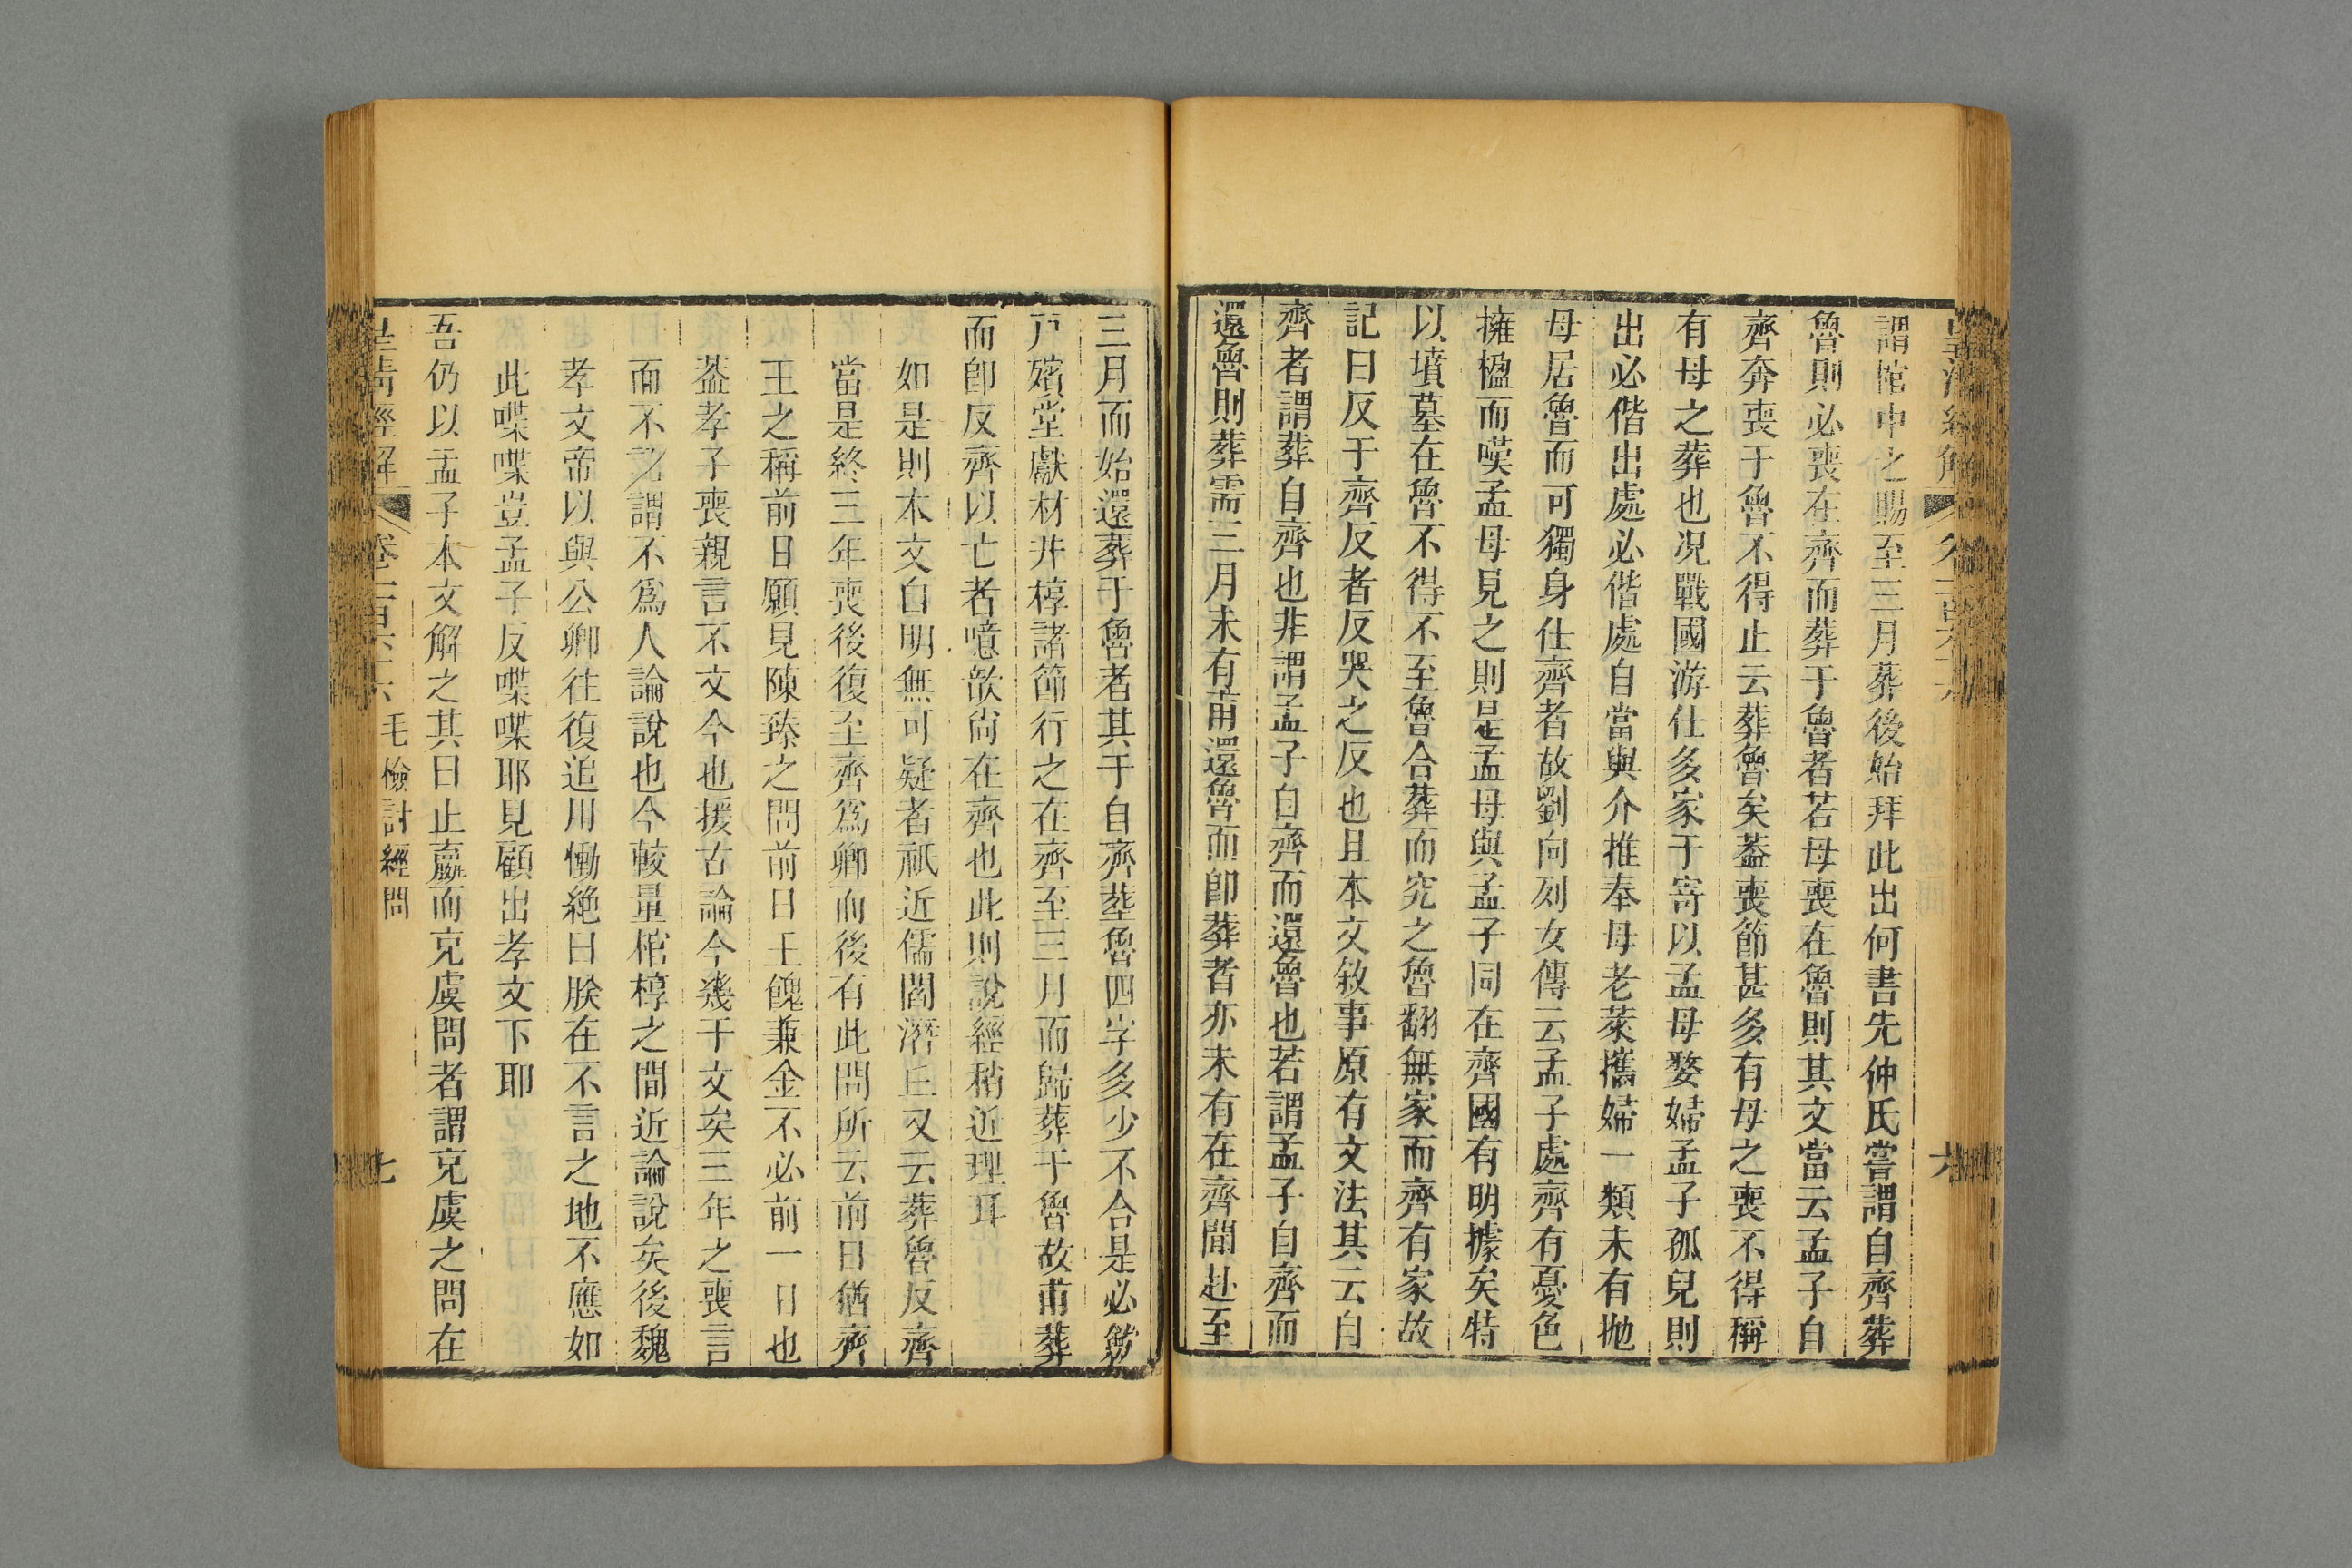 謂棺中之賜至三月葬後始拜此出何書先仲氏嘗謂自齊葬
魯則必喪在齊而葬于魯者若母喪在魯則其文當云孟子自
齊奔喪于魯不得止云葬魯矣葢喪節甚多有母之喪不得稱
有母之葬也况戰國游仕多家于寄以孟母嫠婦孟子孤兒則
出必偕出處必偕處自當與介推奉母老萊攜婦一類未有抛
母居魯而可獨身仕齊者故劉向列女傳云孟子處齊有憂色
擁楹而嘆孟母見之則是孟母與孟子同在齊國有明據矣特
以墳墓在魯不得不至魯合葬而究之魯翻無家而齊有家故
記曰反于齊反者反哭之反也且本文敘事原有文法其云自
齊者謂葬自齊也非謂孟子自齊而還魯也若謂孟子自齊而
還魯則葬需三月未有甫還魯而卽葬者亦未有在齊聞赴至
三月而始還葬于魯者其于自齊塟魯四字多少不合是必
戸殯堂獻材井椁諸節行之在齊至三月而歸葬于魯故甫葬
而卽反齊以亡者噫歆尙在齊也此則說經稍近理耳
如是則本文自明無可疑者祇近儒閻潛丘又云葬魯反齊
當是終三年喪後復至齊爲卿而後有此問所云前日猶齊
王之稱前日願見陳臻之問前日王餽兼金不必前一日也
葢孝子喪親言不文今也援古論今幾于文矣三年之喪言
而不謂不爲人論說也今較量棺椁之間近論說矣後魏
孝文帝以與公卿往復追用慟絶曰朕在不言之地不應如
此喋喋豈孟子反喋喋耶見顧出孝文下耶
吾仍以孟子本文解之其曰止嬴而克虞問者謂克虞之問在
皇淸經解 卷一百六十六 毛檢討經問 七